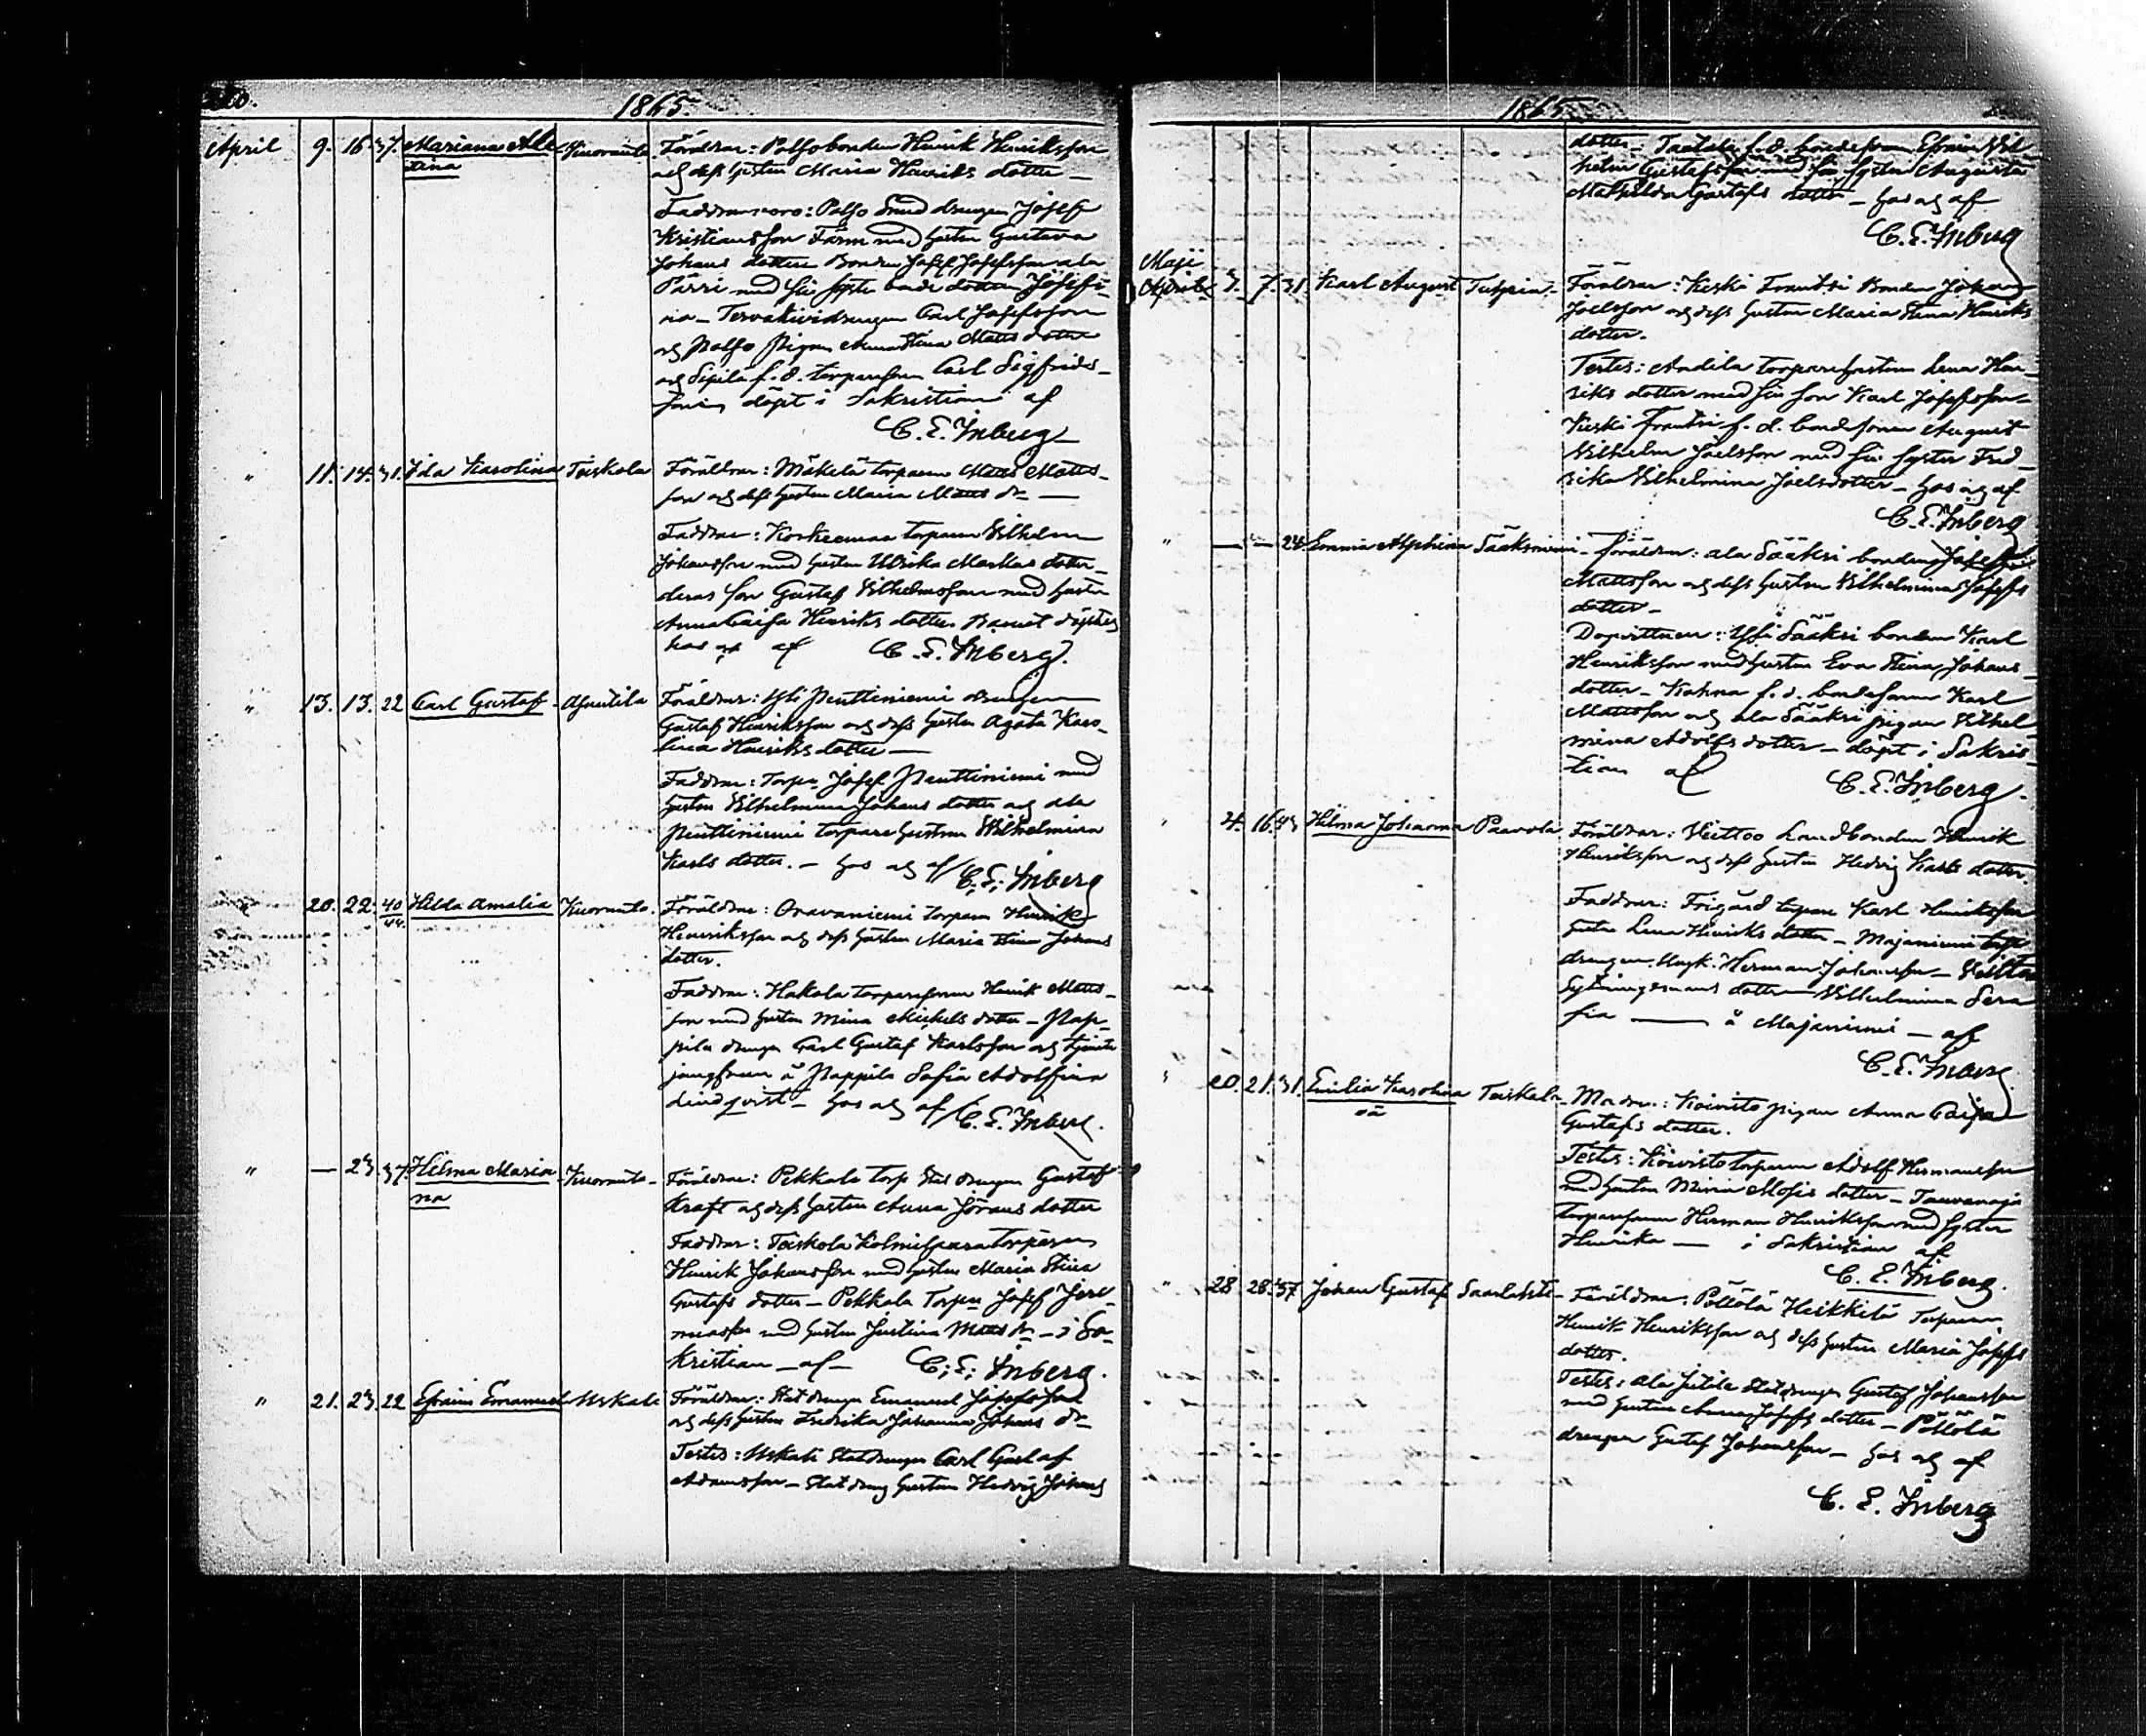 1865.
April 9. 16 37. Mariana Ale Kuorento Föräldrar: Paljo bonden Henrik Henriksson
tina och dess hustru Maria Henriks dotter —
Faddrar voro: Paljo Smed drengen Josef
Kristiansson Färm med hustru Gustava
Johans dotter Bonden Josef Josefsson ala
Pärri med sin syster bonde dottern Josefi-
na — Tervakivi drengen Carl Josefsson
och Paljo pigan Anna Stina Matts dotter
och Sipilä f. d. torpareson Carl Sigfrids-
son döpt i Sakristian af
C. E. Inberg
" 11. 14. 31. Ida Karolina Teiskola Föräldrar: Mäkelä torparen Matts Matts-
son och dess hustru Maria Matts dr —
Faddrar: Koskenmaa torparen Vilhelm
Johansson med hustru Ulrika Markus dotter —
deras son Gustaf Vilhelmsson med hustru
Anna Caisa Henriks dotter. Barnet döptes
hos af C. E. Inberg.
" 13. 13. 22 Carl Gustaf Föräldrar: Yli Penttiniemi drengen
Gustaf Henriksson och dess hustru Agata Karo-
lina Henriks dotter —
Faddrar: Torp. Josef Penttiniemi med
hustru Vilhelmina Johans dotter och ala
Penttiniemi torpare hustrun Wilhelmina
Karls dotter. — hos af C. E. Inberg
20. 22. 40 Hilda Amalia Kuorento. Föräldrar: Oravaniemi torparen Henrik
44 Henriksson och dess hustru Maria Stina Johans
dotter.
Faddrar: Hakola torpareson Henrik Matts-
son med hustru Mina Mickels dotter — Pap-
pila drengen Carl Gustaf Karlsson och tjenste
jungfrun å Pappila Sofia Adolfina
Lindqvist — hos af C. E. Inberg.
" — 23. 37. Helma Maria Kuorento — Föräldrar: Pekkala torp Stat drengen Gustaf
na Kraft och dess hustru Anna Görans dotter
Faddrar: Teiskola torparen
Henrik Johansson med hustru Maria Stina
Gustafs dotter — Pekkala Torpn Josef Jere-
miasson med hustru Justina Matts dr — i Sa-
kristian — af — C. E. Inberg.
" 21. 23 22 Efraim Emanuel Uskali Föräldrar: Stat drengen Emanuel Josefsson
och dess hustru Fredrika Johanna Johans dr
Testes: Uskali Statdrengen Carl Gustaf
Adamsson — Stat dreng hustrun Hedvig Johans
1865
dotter. f. d. bondesonen Efraim Vil
helm Gustafsson med sin syster Augusta
Mathilda Gustafs dotter — hos af
C. E. Inberg
Maji
April 3. 7. 31 Karl August Föräldrar: Keski Frantsi Bonden Johan
Joelsson och dess hustru Maria Stina Henriks
dotter.
Testes: Andila torparehustrun Lena Hen-
riks dotter med sin son Karl Josefsson
Keski Frantsi f. d. bondesonen August
Vilhelm Joelsson med sin syster Fred-
rika Vilhelmina Joelsdotter — hos af
C. E. Inberg
" — — 24. Emma Sääksniemi — Föräldrar: ala Sääksi bonden Josef
Mattsson och dess hustru Vilhelmina Josefs
dotter —
Dopvittnen: Yli Sääksi bonden Karl
Henriksson med hustru Eva Stina Johans
dotter — f. d. bondesonen Karl
Mattsson och ala Sääksi pigan Vilhel-
mina Adolfs dotter — döpt i Sakris-
tian af C. E. Inberg.
4. 16. 43 Hilma Johanna Paavola Föräldrar: Landbonden Henrik
Henriksson och dess hustru Hedvig Karls dotter.
Faddrar: Frigård torpare Karl Henriksson
hustru Lena Henriks dotter — Majaniemi
drengen Ungk. Herman Johansson —
Sytningsmans dotter Vilhelmina Sera
fia — å Majaniemi — af
C. E. Inberg
20. 21. 31. Emilia Karolina Teiskola — Modren: Koivisto pigan Anna Caisa
oä Gustafs dotter.
Testes: Koivisto torparen Adolf Hermansson
med hustru Mina Mosis dotter —
torparesonen Herman Henriksson med syster
Henrika — i Sakristian af
C. E. Inberg.
" 28 28. 37. Johan Gustaf Saarlahti — Föräldrar: Pöllölä Heikkilä Torparen
Henrik Henriksson och dess hustru Maria Josefs
dotter.
Testes: ala Jutila Statdrengen Gustaf Johansson
med hustru Anna Josefs dotter — Pöllölä
drengen Gustaf Johansson — hos af
C. E. Inberg